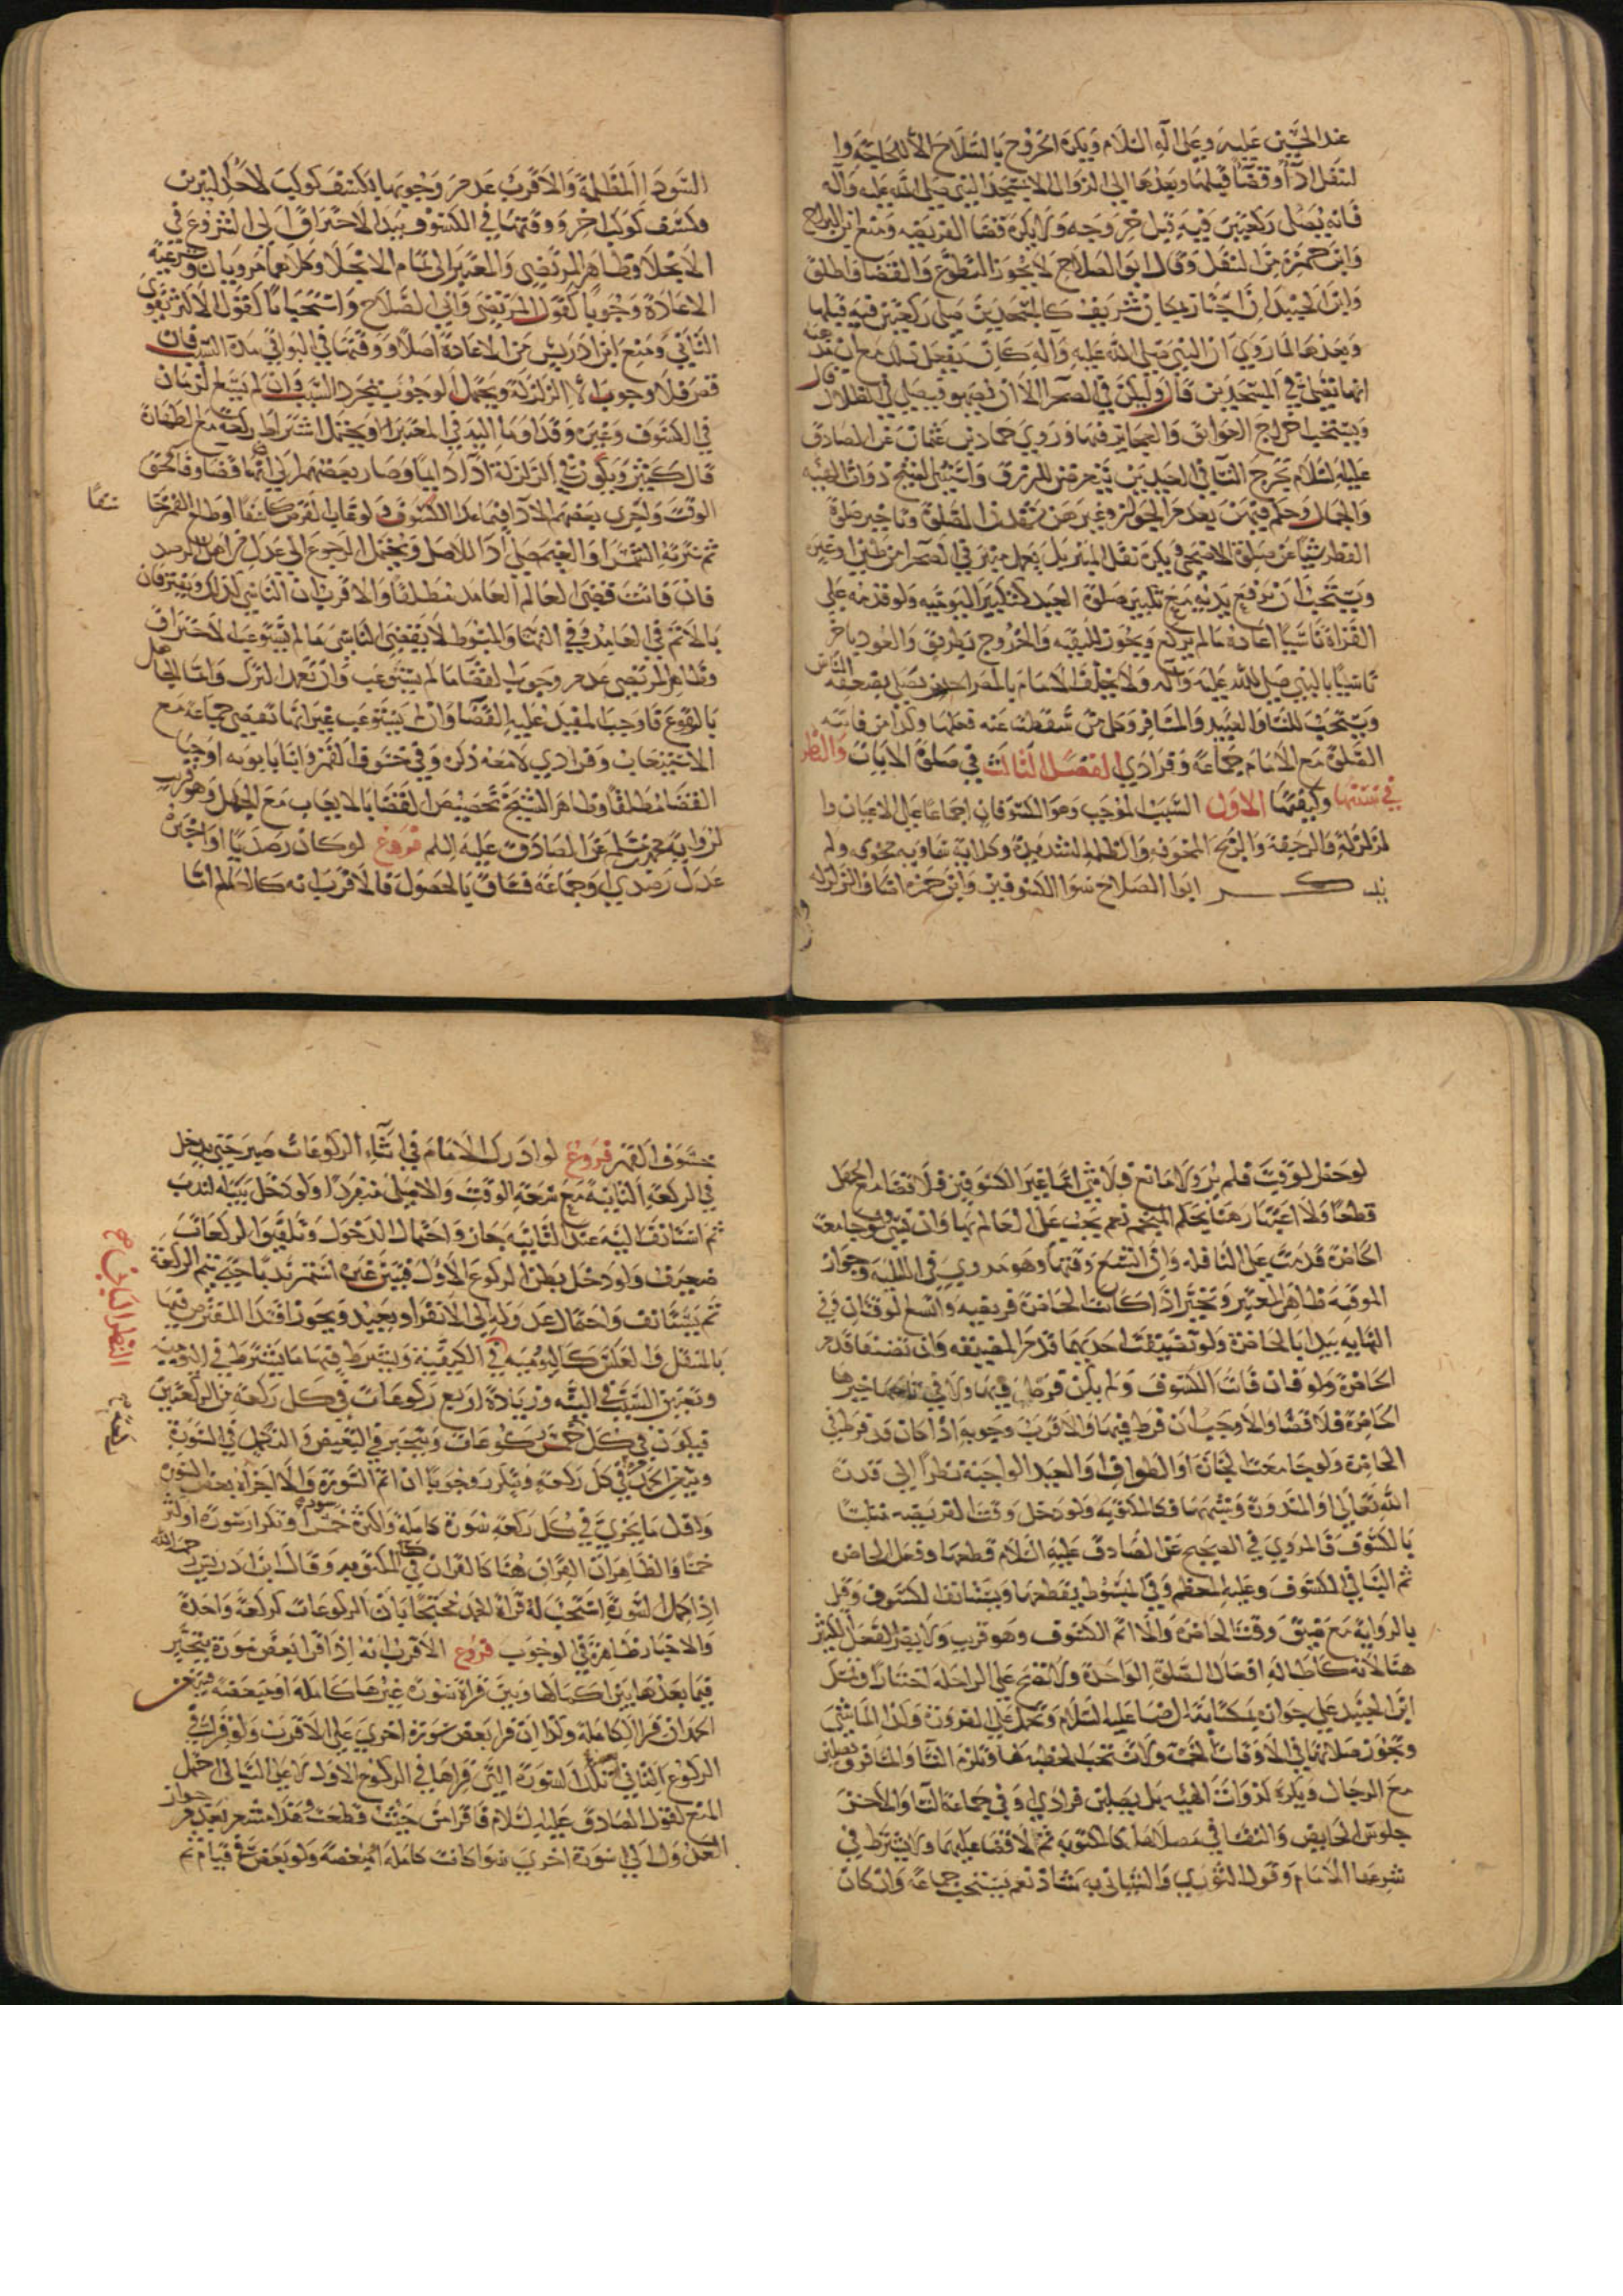 عند الحسين عليه وعلى آله السلام ويكره الخروج بالسلاح الا لحاجة وا
لتنفل اداء وقضاء قبلها وبعدها الى الزوال الا بمسجد النبي صلى الله عليه وآله
فانه يصلى ركعتين فيه قبل خروجه ولا يكره قضا الفريضه ومنع ابن البراج
وابن حمزة من التنفل وقال ابو الصلاح لا يجوز التطوع والقضا واطلق
وابن الجنيد ان اجتاز بمكان شريف كالمسجدين صلى ركعتين فيه قبلها
وبعدها لما روي ان النبي صلى الله عليه وآله كان يفعل ذلك مع ان عنده
انها تصلى في المسجدين قال وليكن في الصحرا الا ان
ويستحب اخراج العواتق والعجايز فيما روي حماد بن عثمان عن الصادق
عليه السلام تخرج النسا في العيدين يتعرضن للرزق واستثنى الشيخ ذوات الهيئه
والجمال وحكم فيهن بعدم الجواز وغيرهن
الفطر شيئا عن صلوة الاضحى ويكره نقل المنبر بل يعمل منبر في الصحرا من طين او غيره
ويستحب ان يرفع يديه مع تكبير صلوة العيد كتكبير اليوميه ولو قدمه على
القراة ناسيا اعاده ما لم يركع والخروج بطريق والعود باخر
تاسيا بالنبي صلى الله عليه وآله ولا يخلف الامام بالمصر احدا يصلي بضعفة الناس
ويستحب للنسا والعبيد والمسافر وكل من سقطت عنه فعلها وكذا من فاتته
الصلوة مع الامام جماعة وفرادي الفصل الثالث في صلوة الايات والنظر
في سببها وكيفيتها الاول السبب الموجب وهو الكسوفان اجماعا على الاعيان وا
لزلزلة والرجفة والريح المخوفه والظلمة الشديدة وكل اية سماويه مخوفة ولم
يذكر ابو الصلاح سوا الكسوفين وابن حمزه اضاف الزلزله
السودا المظلمة والاقرب عدم وجوبها بكسف كوكب لاحد النيرين
وكسف كوكب اخر ووقتها في الكسوف ببدا الاحتراق الى الشروع في
الانجلا وظاهر المرتضى والمعتبر الى تمام الانجلا وكلاهما مرويان وشرعية
الاعادة وجوبا كقول المرتضى وابي الصلاح واستحبابا كقول الاكثر يقوي
الثاني ومنع ابن ادريس من الاعادة اصلا ووقتها في البواقي مدة السبب فان
قصر فلا وجوب الا الزلزلة ويحتمل الوجوب بمجرد السبب وان لم يتسع الزمان
في الكسوف وغيره وقد اوما اليه في المعتبر ويحتمل اشتراط ركعة مع الطهارة
قال كثير ويكون في الزلزلة ادا دايما وصار بعضهم الى انها قضا وفاته محقق
الوقت واخرى بعضهم الادا فيما عدا الكسوف ولو غاب القرص كاسفا او طلع القمر منخسفا
ثم سترته الشمس او الغيم صلى ادا للاصل ويحتمل الرجوع الى عدل من اهل الرصد
فان فاتت قضى العالم العامد مطلقا والاقرب ان الناسي كذلك ويفترقان
بالاثم في العامد وفي النهاية والمبسوط لا يقضى الناسى ما لم يستوعب الاحتراق
وظاهر المرتضى عدم وجوب القضا ما لم يستوعب وان تعمد الترك واما الجاهل
بالوقوع فاوجب المفيد عليه القضا وان لم يستوعب غير انها تقضى جماعة مع
الاستيعاب وفرادي لا معه ذكره في خسوف القمر وابنا بابويه اوجبا
القضا مطلقا وظاهر الشيخ تخصيص القضا بالايعاب مع الجهل وهو قريب
لرواية محمد بن مسلم عن الصادق عليه السلم فروع لو كان رصديا او اخبره
عدل رصدي او جماعة فساق بالحصول فالاقرب انه كالعالم اما
لو حضر الوقت فلم ير ولا مانع فلا شي اما غير الكسوفين فلا قضا مع الجهل
قطعا ولا اعتبار هنا بحكم المنجم نعم يجب على العالم بها وان نسى ولو جامعت
الحاضرة قدمت على النافله وان اتسع وقتها وهو مروي في الليلية وجواز
الموقة ظاهر المعتبر وتخير اذا كانت الحاضرة فريضيه واتسع الوقتان وفي
النهايه يبدا بالحاضرة ولو تضيقت احديهما قدم المضيقه وان تضيقا قدم
الحاضرة ولو فات الكسوف ولم يكن فرط فيها ولا في تاخير
الحاضرة فلا قضا والا وجب ان فرط فيها والاقرب وجوبه اذا كان قد فرط في
الحاضرة ولو جامعت الجنازة او الطواف او العيد الواجبة نظرا الى قدرة
الله تعالى او المنذورة وشبهها فكالمكتوبة ولو دخل وقت الفريضه متلبسا
بالكسوف فالمروي في الصحيح عن الصادق عليه السلام قطعها وفعل الحاضره
ثم البنا في الكسوف وعليه المعظم وفي المبسوط يقطعها ويستانف الكسوف وقيل
بالرواية مع ضيق وقت الحاضره والا اتم الكسوف وهو قريب ولا يضر الفعل الكثير
هنا لانه كاطالة افعال الصلوة الواحدة ولا تصح على الراحلة اختيارا ونقل
ابن الجنيد على جوازه بمكاتبة الرضا عليه السلام وتحمل على الضرورة وكذا الماشي
وتجوز صلاتها في الاوقات الخمسة ولا تستحب الخطبه لها وتلزم النسا والمسافر ويصلين
مع الرجال ويكره لذوات الهيئه بل يصلين فرادي او في جماعة النسا والاحسن
جلوس الحايض والنفسا في مصلاهما كالمكتوبة ثم لا قضا عليهما ولا يشترط في
شرعيتها الامام وقول الثوري والشيباني به شاذ نعم يستحب جماعة وان كان
خسوف القمر فروع لو ادرك الامام في اثناء الركوعات صبر حتى يدخل
في الركعة الثانية مع سعة الوقت والا صلى منفردا ولو دخل بنيه الندب
ثم استانف النية عند الثانيه جاز واحتمال الدخول وتلفيق الركعات
ضعيف ولو دخل بظن الركوع الاول فتبين غيره استمر ندبا حتى يتم الركعة
ثم يستانف واحتمال عدوله الى الانفراد بعيد ويجوز اقتدا المفترض فيها
بالمتنفل في الكيفية ويشترط فيها ما يشترط في اليومية
وتعيين السبب في النية وزيادة اربع ركوعات في كل ركعة من الركعتين
فيكون في كل خمس ركوعات ويتخير في التبعيض والتكميل في السورة
ويتعين الحمد في كل ركعة ويتكرر وجوبا ان اتم السورة والا اجزاه بعض السورة
واقل ما يجزي في كل ركعة سورة كاملة واكثره خمسا وتكرار سورة او
خمسا والظاهر ان القران هنا كالقران في المكتوبه وقال ابن ادريس رحمه الله
اذا اكمل السورة استحب له قراة الحمد محتجا بان الركوعات كركعة واحدة
والاخبار ظاهرة في الوجوب فروع الاقرب انه اذا قرا بعض سورة يتخير
فيما بعدها بين اكمالها وبين قراة سورة غيرها كاملة او مبعضة ويتعين
الحمد ان قرا الكاملة وكذا ان قرا بعض سورة اخرى على الاقرب ولو قرا في
الركوع الثاني تلك السورة التي قراها في الركوع الاول لا على التوالي احتمل
المنع لقول الصادق عليه السلام فاقرا من حيث قطعت وهذا مشعر بعدم جواز
العدول الى سورة اخري سوا كانت كاملة ام مبعضة ولو بعض في قيام ثم
النظر الثاني في
كيفيتها